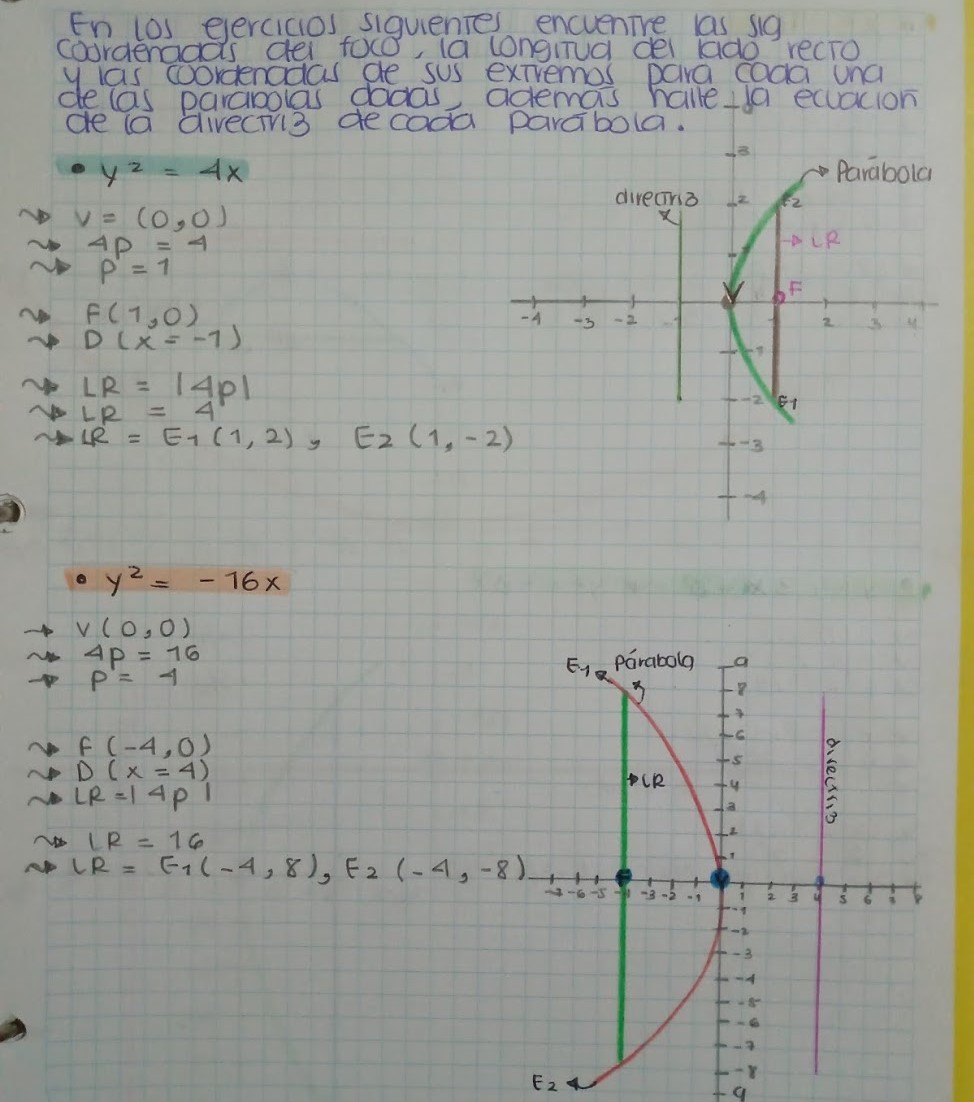 En los ejercicios siguientes encuentre las sig
coordenadas del foco, la longitud del lado recto
y las coordenadas de sus extremos para cada una
de las parabolas dadas, además halle la ecuación
de la directriz de cada parábola.
• y² = 4x
V = (0,0)
4p = 4
p = 1
F(1,0)
D (x = -1)
LR = |4p|
LR = 4
LR = E1 (1, 2), E2 (1, -2)
3
Parábola
directriz
2
E2
LR
V
F
-4 -3 -2 2 3 4
-1
-2
E1
-3
-4
• y² = -16x
V(0,0)
4p = 16
p = 4
F (-4,0)
D (x = 4)
LR = |4p|
LR = 16
LR = E1(-4, 8), E2 (-4, -8)
E1 Párabola
9
8
7
6
5
4
3
2
1
LR
directriz
-7 -6 -5 -4 -3 -2 -1 1 2 3 4 5 6 7 8
-1
-2
-3
-4
-5
-6
-7
-8
9
E2